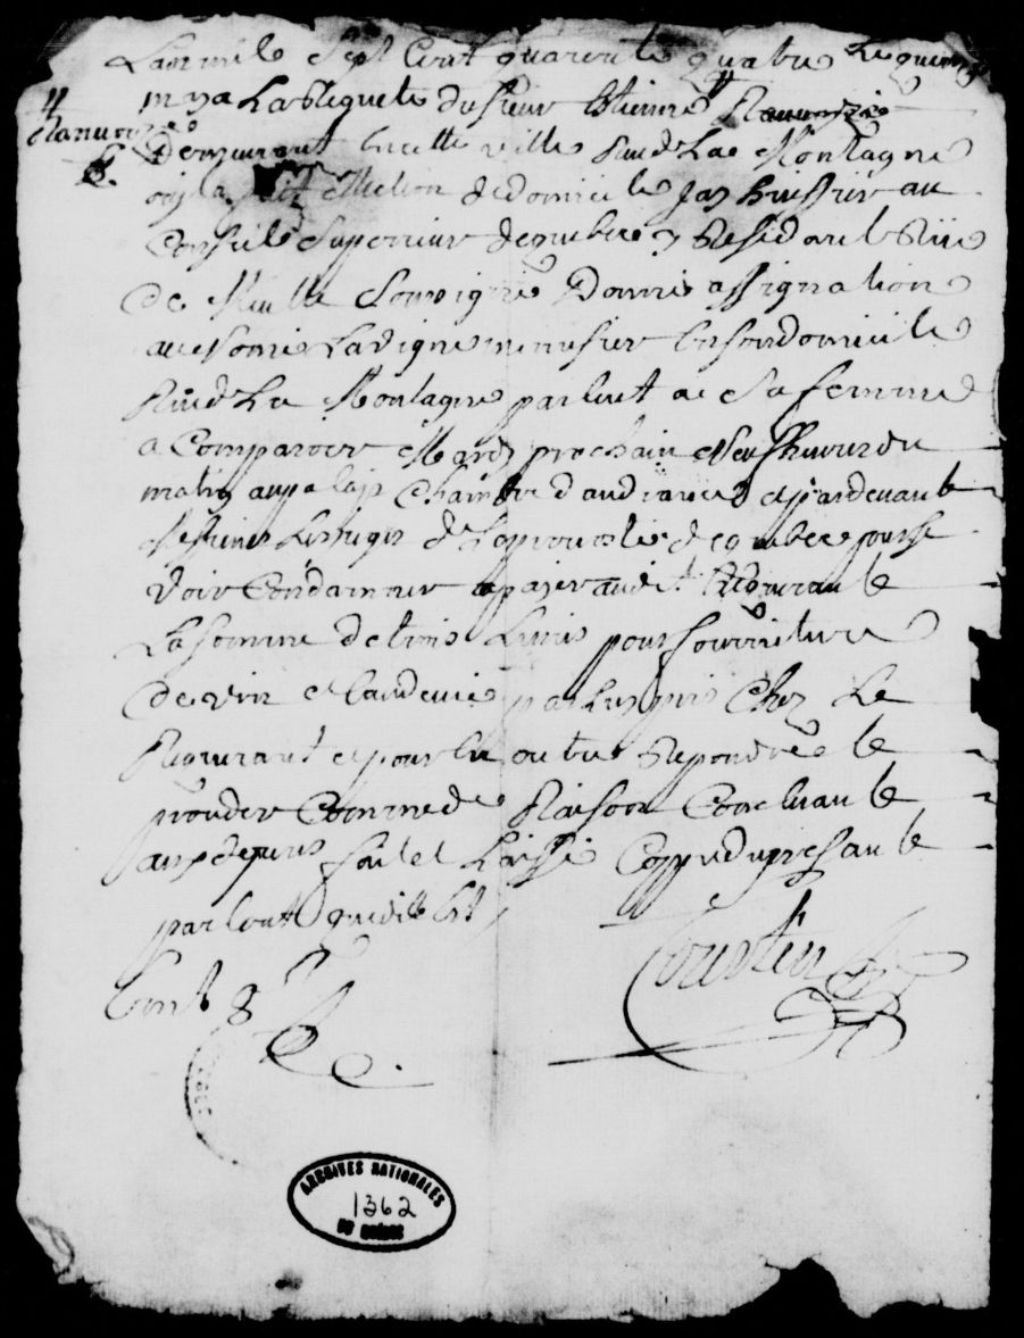 Lan mil Sept Cent quarente quatre Le quinze
may a La Requete du sieur Etienne
Demeurant En cette ville Rue de La Montagne
ou il a fait Election de domicile Jay huissier au
Conseil Superieur de quebec y Residant Rüe
de Donné assignation
au nomé Ladigne menusier En son domicile
Rüe de La Montagne parlant a Sa femme
a Comparoir Mardy prochain Neuf heures du
matin au palais Chambre d audiance et pardevant
Messieurs Les Juges de La prevosté de quebec pour se
Voir Condamner a payer audit. Requerant
La somme de trois Livres pour fourniture
de vin et Eaudevie par Luy pris Chez Le
Requerant et pour En outre Repondre et
proceder Comme de Raison Concluant
aux depens fait et Laissé Coppie du presant
parlant que dit Est
Cont 8
ARCHIVES NATIONALES
1362
DU QUÉBEC